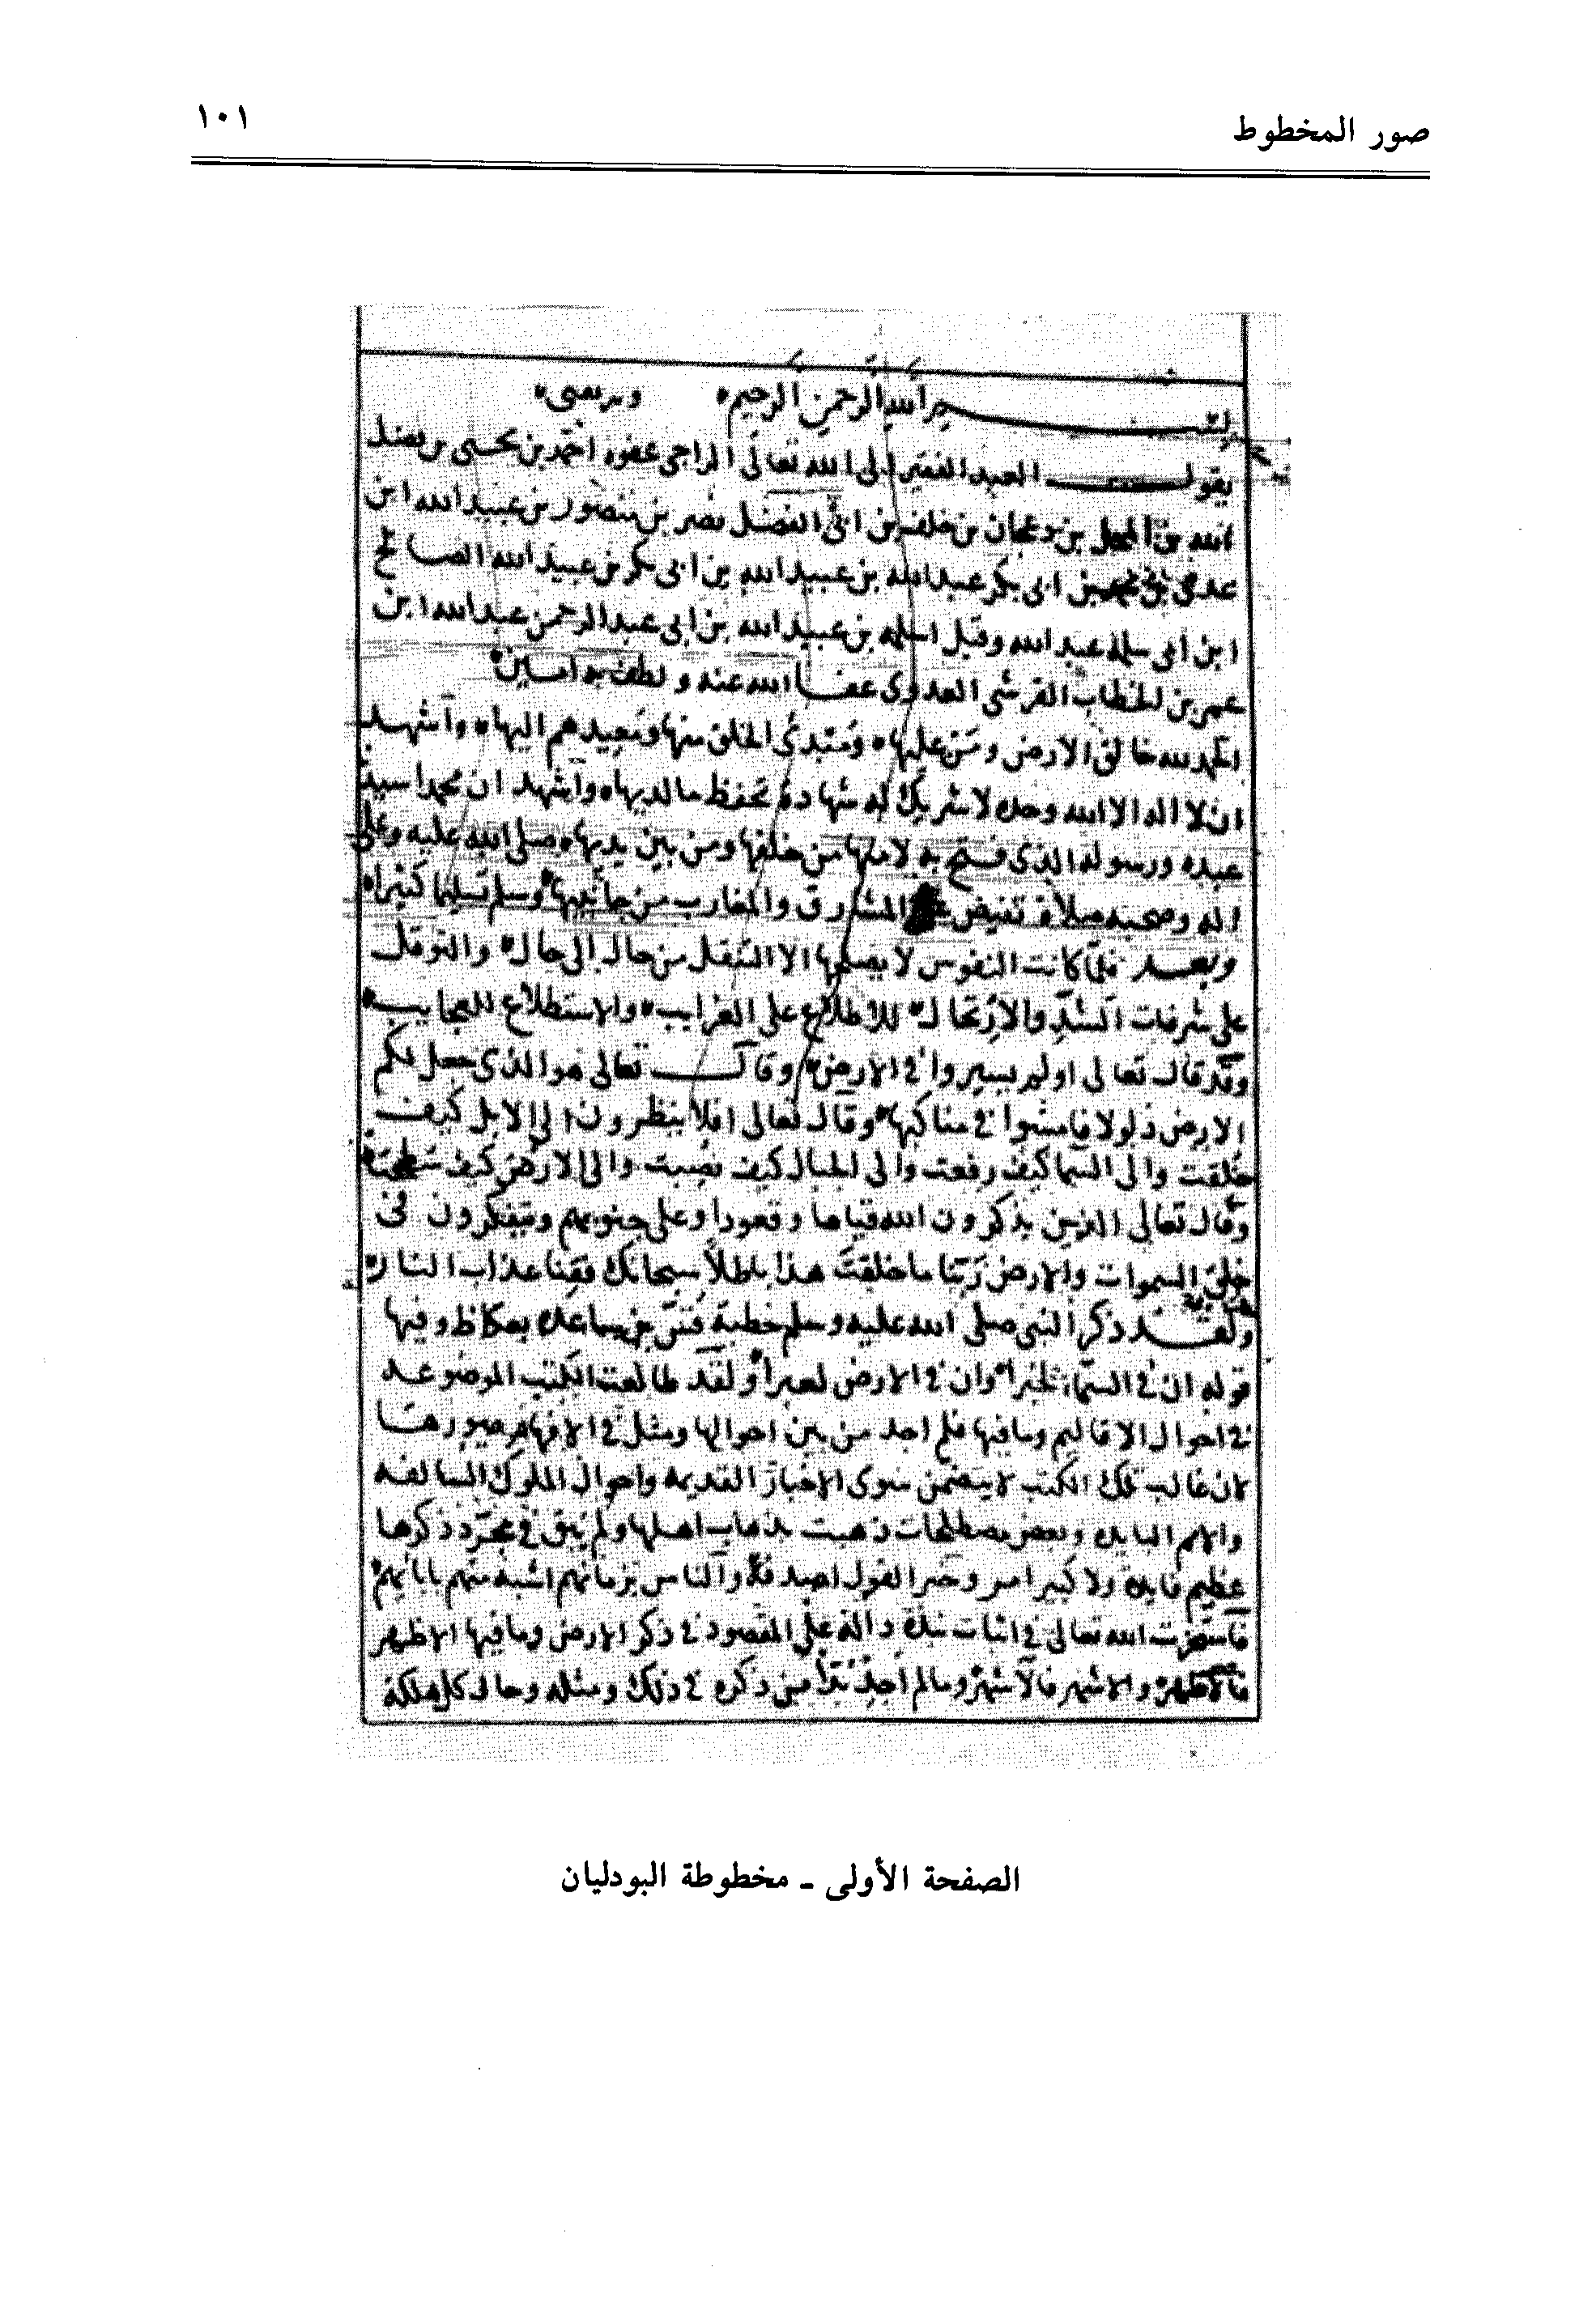 صور المخطوط
١٠١
بسم الله الرحمن الرحيم
يقول العبد الفقير الى الله تعالى الراجى عفوه احمد بن يحيى بن فضل
الله بن المجلى بن دعجان بن خلف بن ابى الفضل نصر بن منصور بن عبيد الله ابن
ابى بكر عبد الله بن عبيد الله بن ابى بكر بن عبيد الله الصالح
ابن أبى سلمة عبد الله وقيل اسلمه بن عبيد الله بن ابى عبد الرحمن عبد الله ابن
عمر بن الخطاب القرشى العدوى عفا الله عنه ولطف به امين
الحمد لله خالق الارض ومن عليها ومبتدئ الخلق منها ومعيدهم اليها واشهد
ان لا اله الا الله وحده لا شريك له شهادة تحفظ ما لديها واشهد ان محمدا سيدنا
عبده ورسوله الذى فتح به لامتها من خلفها ومن بين يديها صلى الله عليه وعلى
اله وصحبه صلاة تفيض المشارق والمغارب من جانبيها وسلم تسليما كثيرا
وبعد فلما كانت النفوس لا يصلحها الا التنقل من حال الى حال والتوقل
على شرفات الشد والارتحال للاطلاع على الغرايب والاستطلاع للعجايب
وقد قال تعالى اولم يسيروا فى الارض وقال تعالى هو الذى جعل لكم
الارض ذلولا فامشوا فى مناكبها وقال تعالى افلا ينظرون الى الابل كيف
خلقت والى السما كيف رفعت والى الجبال كيف نصبت والى الارض كيف سطحت
وقال تعالى الذين يذكرون الله قياما وقعودا وعلى جنوبهم ويتفكرون فى
خلق السموات والارض ربنا ما خلقت هذا باطلا سبحانك فقنا عذاب النار
ولقد ذكر النبى صلى الله عليه وسلم خطبة قس بن ساعده بعكاظ وفيها
قوله ان فى السما لخبرا وان فى الارض لعبرا ولقد طالعت الكتب الموضوعه
فى احوال الاقاليم وما فيها فلم اجد من بين احوالها ومثل فى الافهام صورها
لان غالب تلك الكتب لا يتضمن سوى الاخبار القديمه واحوال الملوك السالفه
والامم البايده وبعض مصطلحات ذهبت بذهاب اهلها ولم يبق فى مجرد ذكرها
عظيم فايده ولا كبير امر وخير القول اصدقه والناس بزمانهم اشبه منهم بابائهم
فاستخرت الله تعالى فى اثبات نبذة دالة على المقصود فى ذكر الارض وما فيها الاظهر
فالاظهر والاشهر فالاشهر وما لم اجد بدا من ذكره فى ذلك ومثله وحال كل مملكة
الصفحة الأولى - مخطوطة البودليان